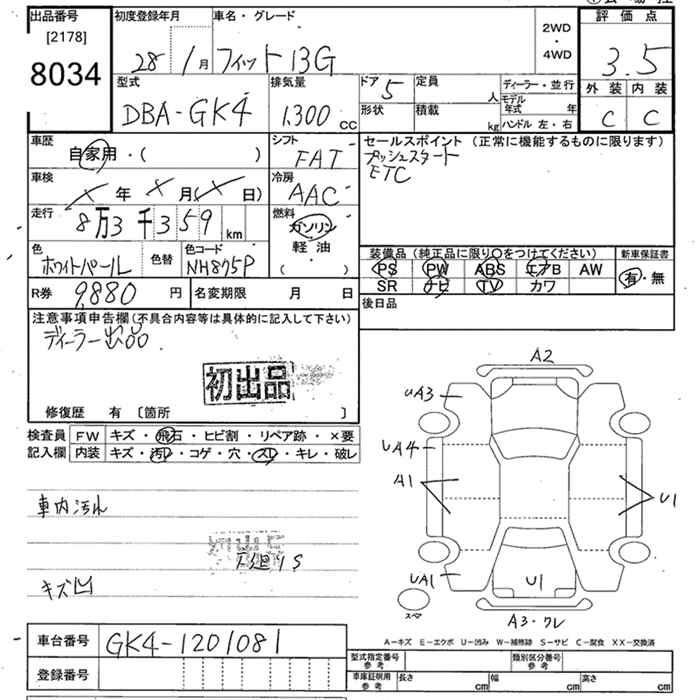 出品番号
[2178]
8034
初度登録年月
28 1月
車名・グレード
フィット 13G
2WD
・
4WD
評価点
3.5
外装 内装
C C
型式
DBA-GK4
排気量
1,300 cc
ドア 5
定員 人
形状
積載 kg
ディーラー・並行
モデル年式 年
ハンドル 左・右
車歴
自家用・( )
シフト
FAT
セールスポイント (正常に機能するものに限ります)
プッシュスタート
ETC
車検
× 年 × 月(× 日)
冷房
AAC
走行
8万3千359 km
燃料
ガソリン
軽油
( )
色
ホワイトパール
色替
色コード
NH875P
装備品 (純正品に限り○をつけてください)
PS PW ABS エアB AW
SR ナビ TV カワ
新車保証書
有・無
R券 9,880 円
名変期限 月 日
後日品
注意事項申告欄(不具合内容等は具体的に記入して下さい)
ディーラー出品
初出品
修復歴 有 〔箇所 〕
検査員記入欄
FW キズ・飛石・ヒビ割・リペア跡・×要
内装 キズ・汚レ・コゲ・穴・スレ・キレ・破レ
車内汚れ
下廻りS
キズ凹
A2
UA3
UA4
A1
U1
UA1
U1
スペア
A3・ワレ
A-キズ E-エクボ U-凹み W-補修跡 S-サビ C-腐食 XX-交換済
車台番号
GK4-1201081
登録番号
型式指定番号 参考
類別区分番号 参考
車庫証明用 参考
長さ cm
幅 cm
高さ cm